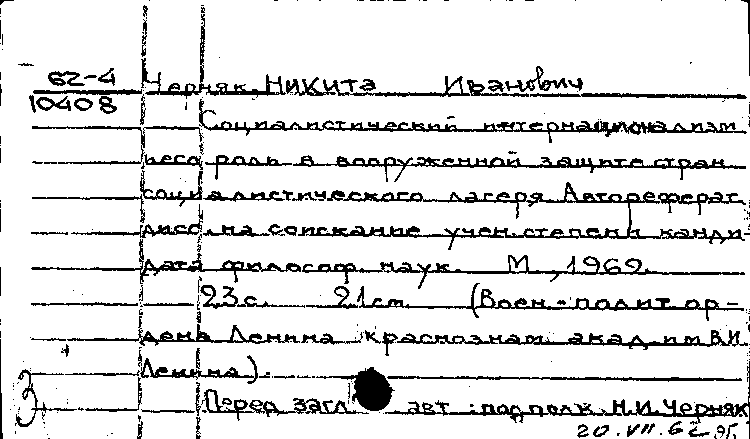 62-4
10408
Черняк Никита Иванович
Социалистический интернационализм
и его роль в вооруженной защите стран
социалистического лагеря Автореферат
дисс. на соискание учен. степени канди-
дата философ. наук. М., 1962.
23 с. 21 см. (Воен.-полит ор-
дена Ленина краснознам акад. им В.И.
Ленина).
Перед загл авт : подполк. Н.И. Черняк
20.VII.62
3